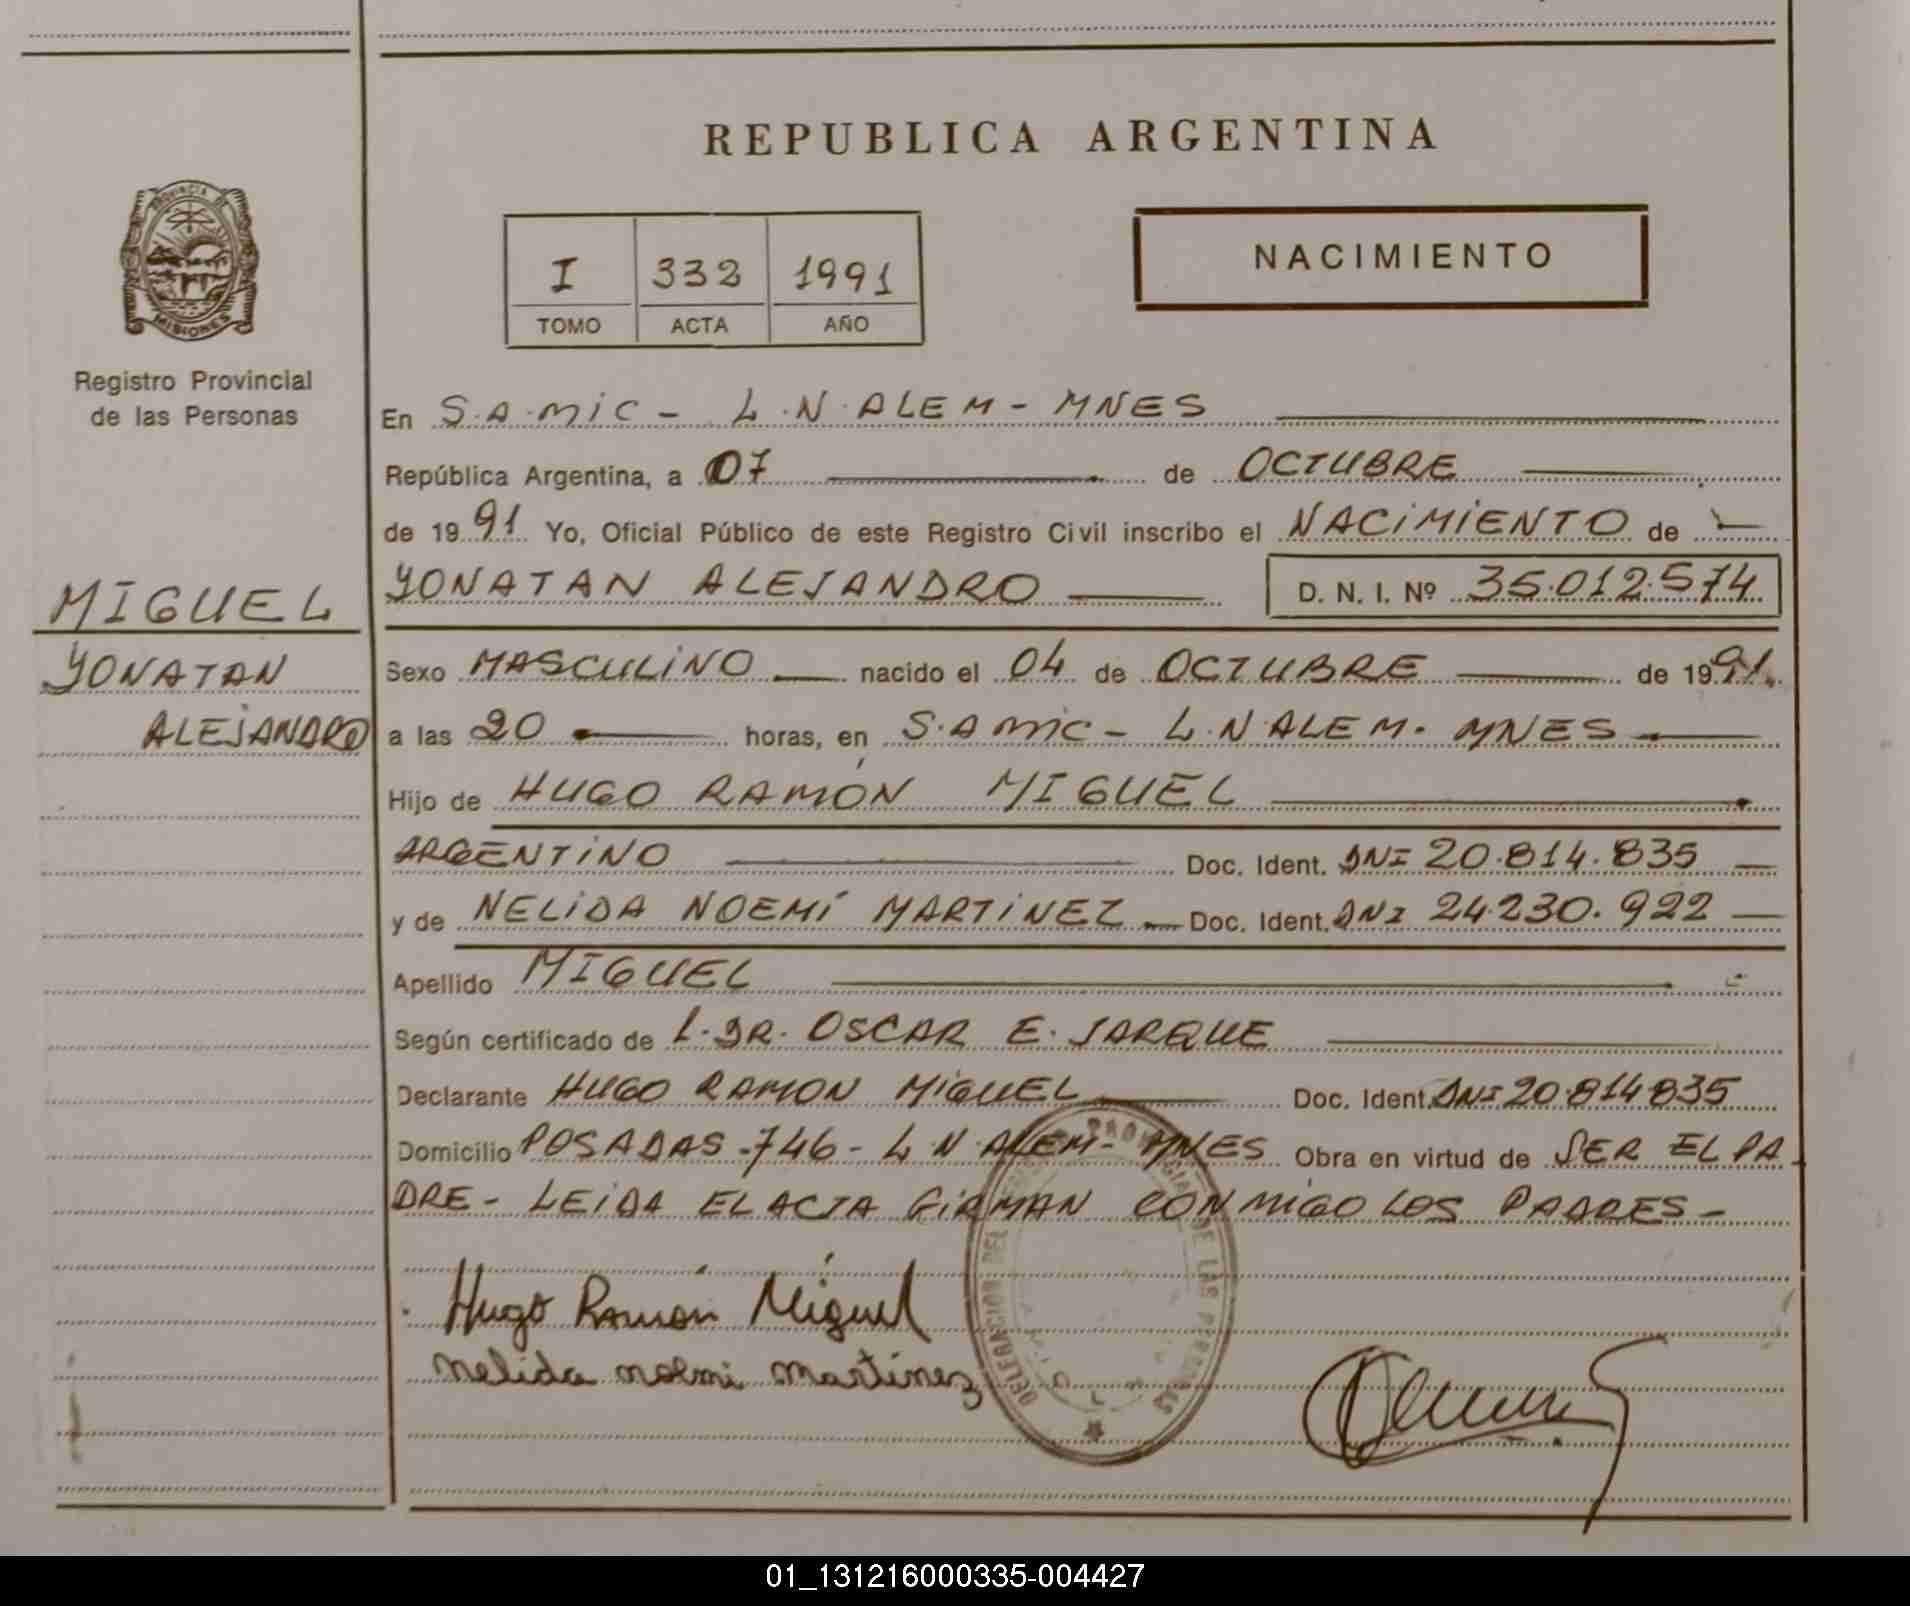 REPUBLICA ARGENTINA
PROVINCIA DE
MISIONES
Registro Provincial
de las Personas
I 332 1991
TOMO ACTA AÑO
NACIMIENTO
En S.A.MIC - L.N.ALEM - MNES
República Argentina, a 07 de OCTUBRE
de 1991 Yo, Oficial Público de este Registro Civil inscribo el NACIMIENTO de
YONATAN ALEJANDRO D. N. I. Nº 35.012.574
MIGUEL
YONATAN
ALEJANDRO
Sexo MASCULINO nacido el 04 de OCTUBRE de 1991.
a las 20 horas, en S.A MIC - L.N ALEM. MNES
Hijo de HUGO RAMÓN MIGUEL
ARGENTINO Doc. Ident. DNI 20.814.835
y de NELIDA NOEMÍ MARTINEZ Doc. Ident. DNI 24.230.922
Apellido MIGUEL
Según certificado de L. DR. OSCAR E. JARQUE
Declarante HUGO RAMON MIGUEL Doc. Ident. DNI 20.814835
Domicilio POSADAS -746- L N ALEM- MNES Obra en virtud de SER EL PA
DRE - LEIDA EL ACTA FIRMAN CONMIGO LOS PADRES -
Hugo Ramón Miguel
Nelida noemi martinez
DELEGACION DEL PROVINCIAL DE LAS PERSONAS
01_131216000335-004427